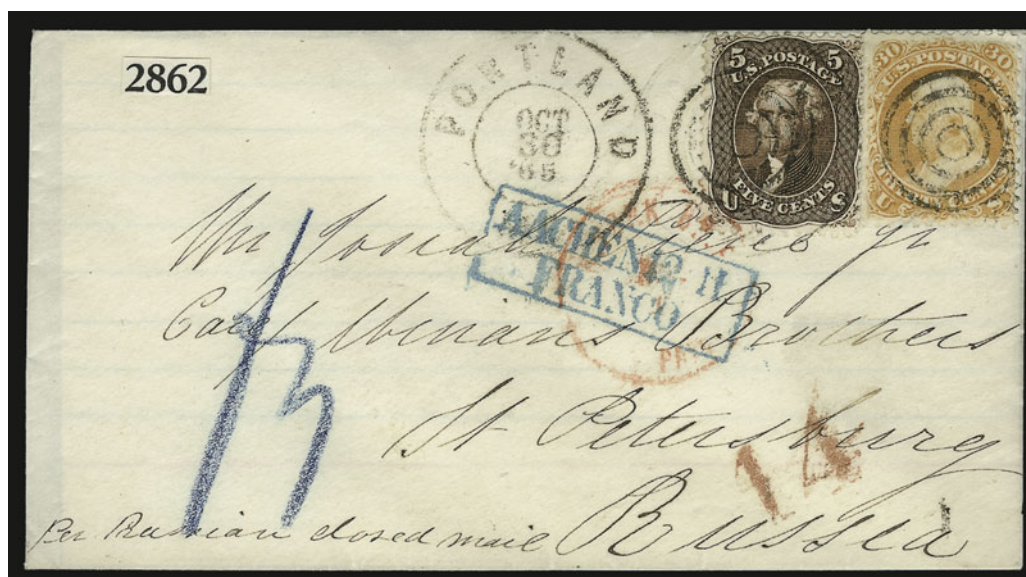 2862
PORTLAND
OCT
30
'65
5 5
U.S. POSTAGE
FIVE CENTS
U S
30 30
U.S. POSTAGE
U
AACHEN 12 11
FRANCO
Mr Josiah jr
Care Winans Brothers
St Petersburg
14
Russia
Per Prussian closed mail